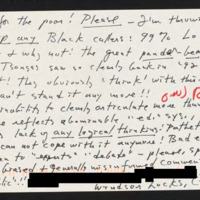 for the poor! Please - Jim throwi
any Black callers! 99% Lo
+ why not! the great pander-bear
Tsongas saw so clearly back in '92
they obviously think! with this
can't stand it any more!!
inability to clearly articulate more than
reflects abominable "ed." sys.,
lack of any logical thinking!
can not cope with it anymore!
to "experts" debate - please,
biased + generally misinformed comment
Windsor Locks, C